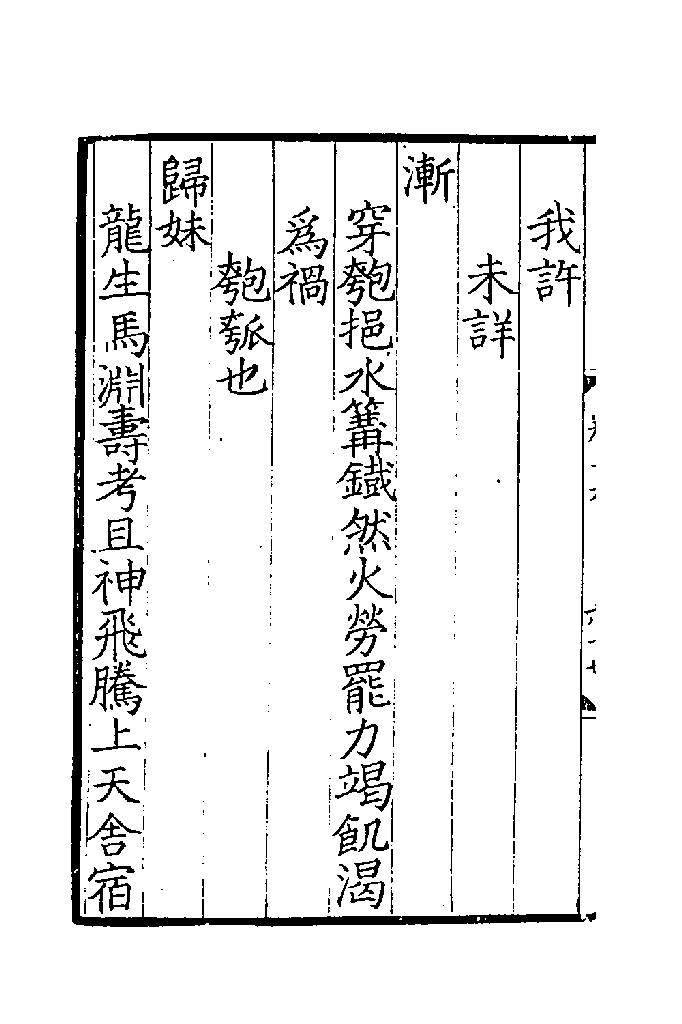 我許
未詳
漸
穿匏挹水篝鐡然火勞罷力竭飢渴
爲禍
匏瓠也
歸妹
龍生馬淵壽考且神飛騰上天舍宿